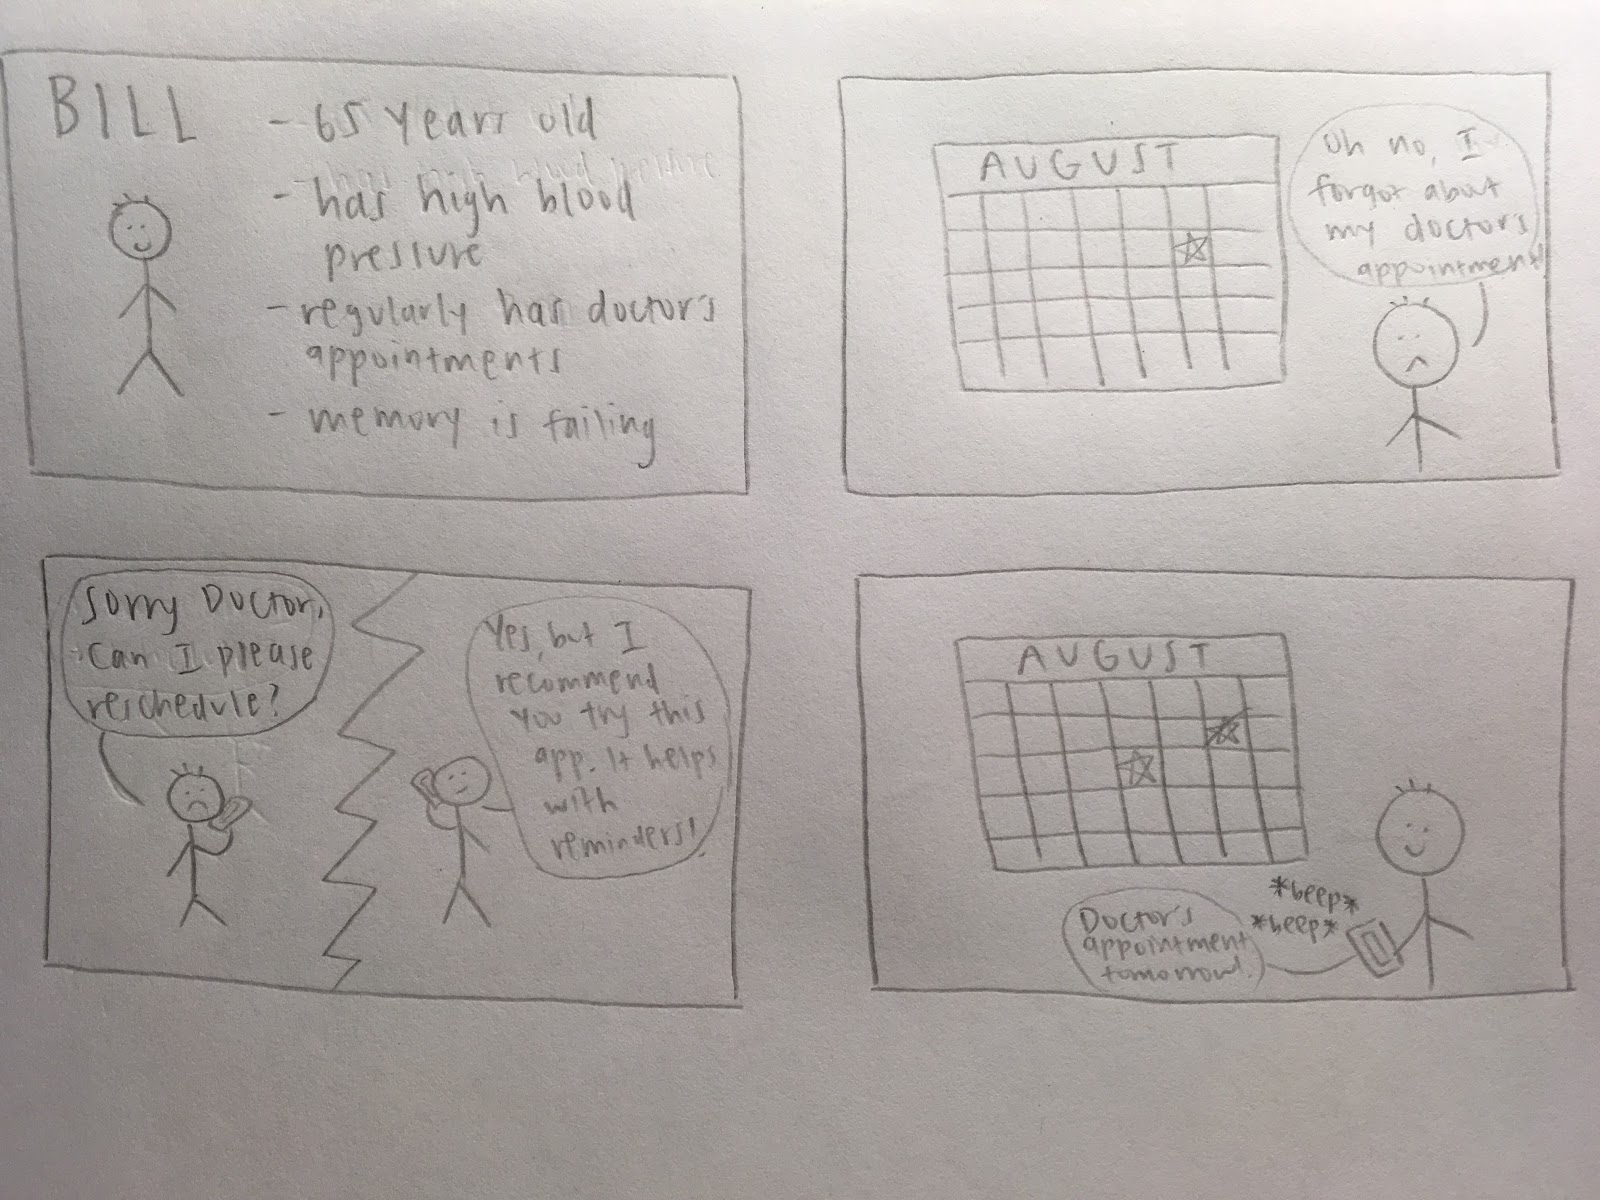 BILL
- 65 years old
- has high blood
pressure
- regularly has doctor's
appointments
- memory is failing
AUGUST
Uh no, I
forgot about
my doctor's
appointment!
Sorry Doctor,
can I please
reschedule?
Yes, but I
recommend
you try this
app. It helps
with
reminders!
AUGUST
*beep*
*beep*
Doctor's
appointment
tomorrow.